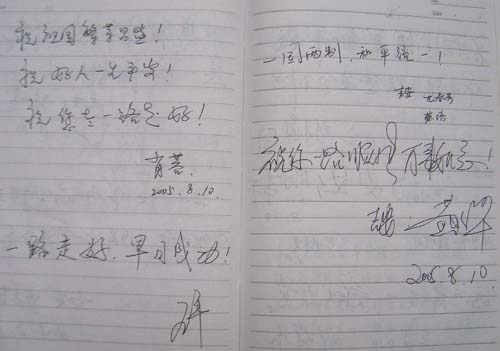 祝祖国繁荣昌盛!
祝好人一生平安!
祝您走一路走好!
2005.8.10.
一路走好,早日成功!
一国两制,和平统一!
祝你一路顺风 万事如意!
2005.8.10